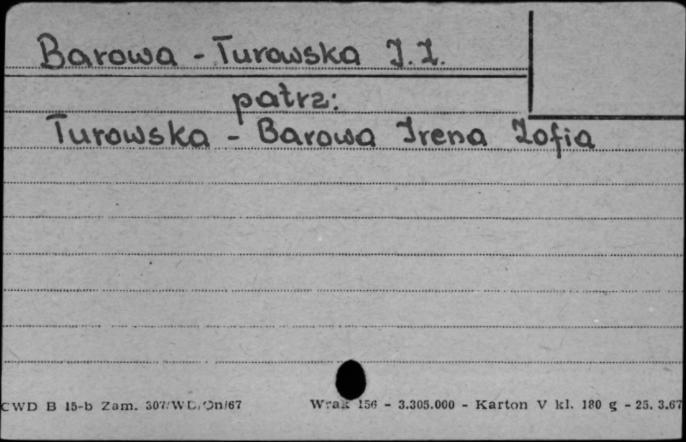 Barowa - Turowska I. Z.
patrz:
Turowska - Barowa Irena Zofia
CWD B 15-b Zam. 307/WD/On/67 Wrak 156 - 3.305.000 - Karton V kl. 180 g - 25. 3.67